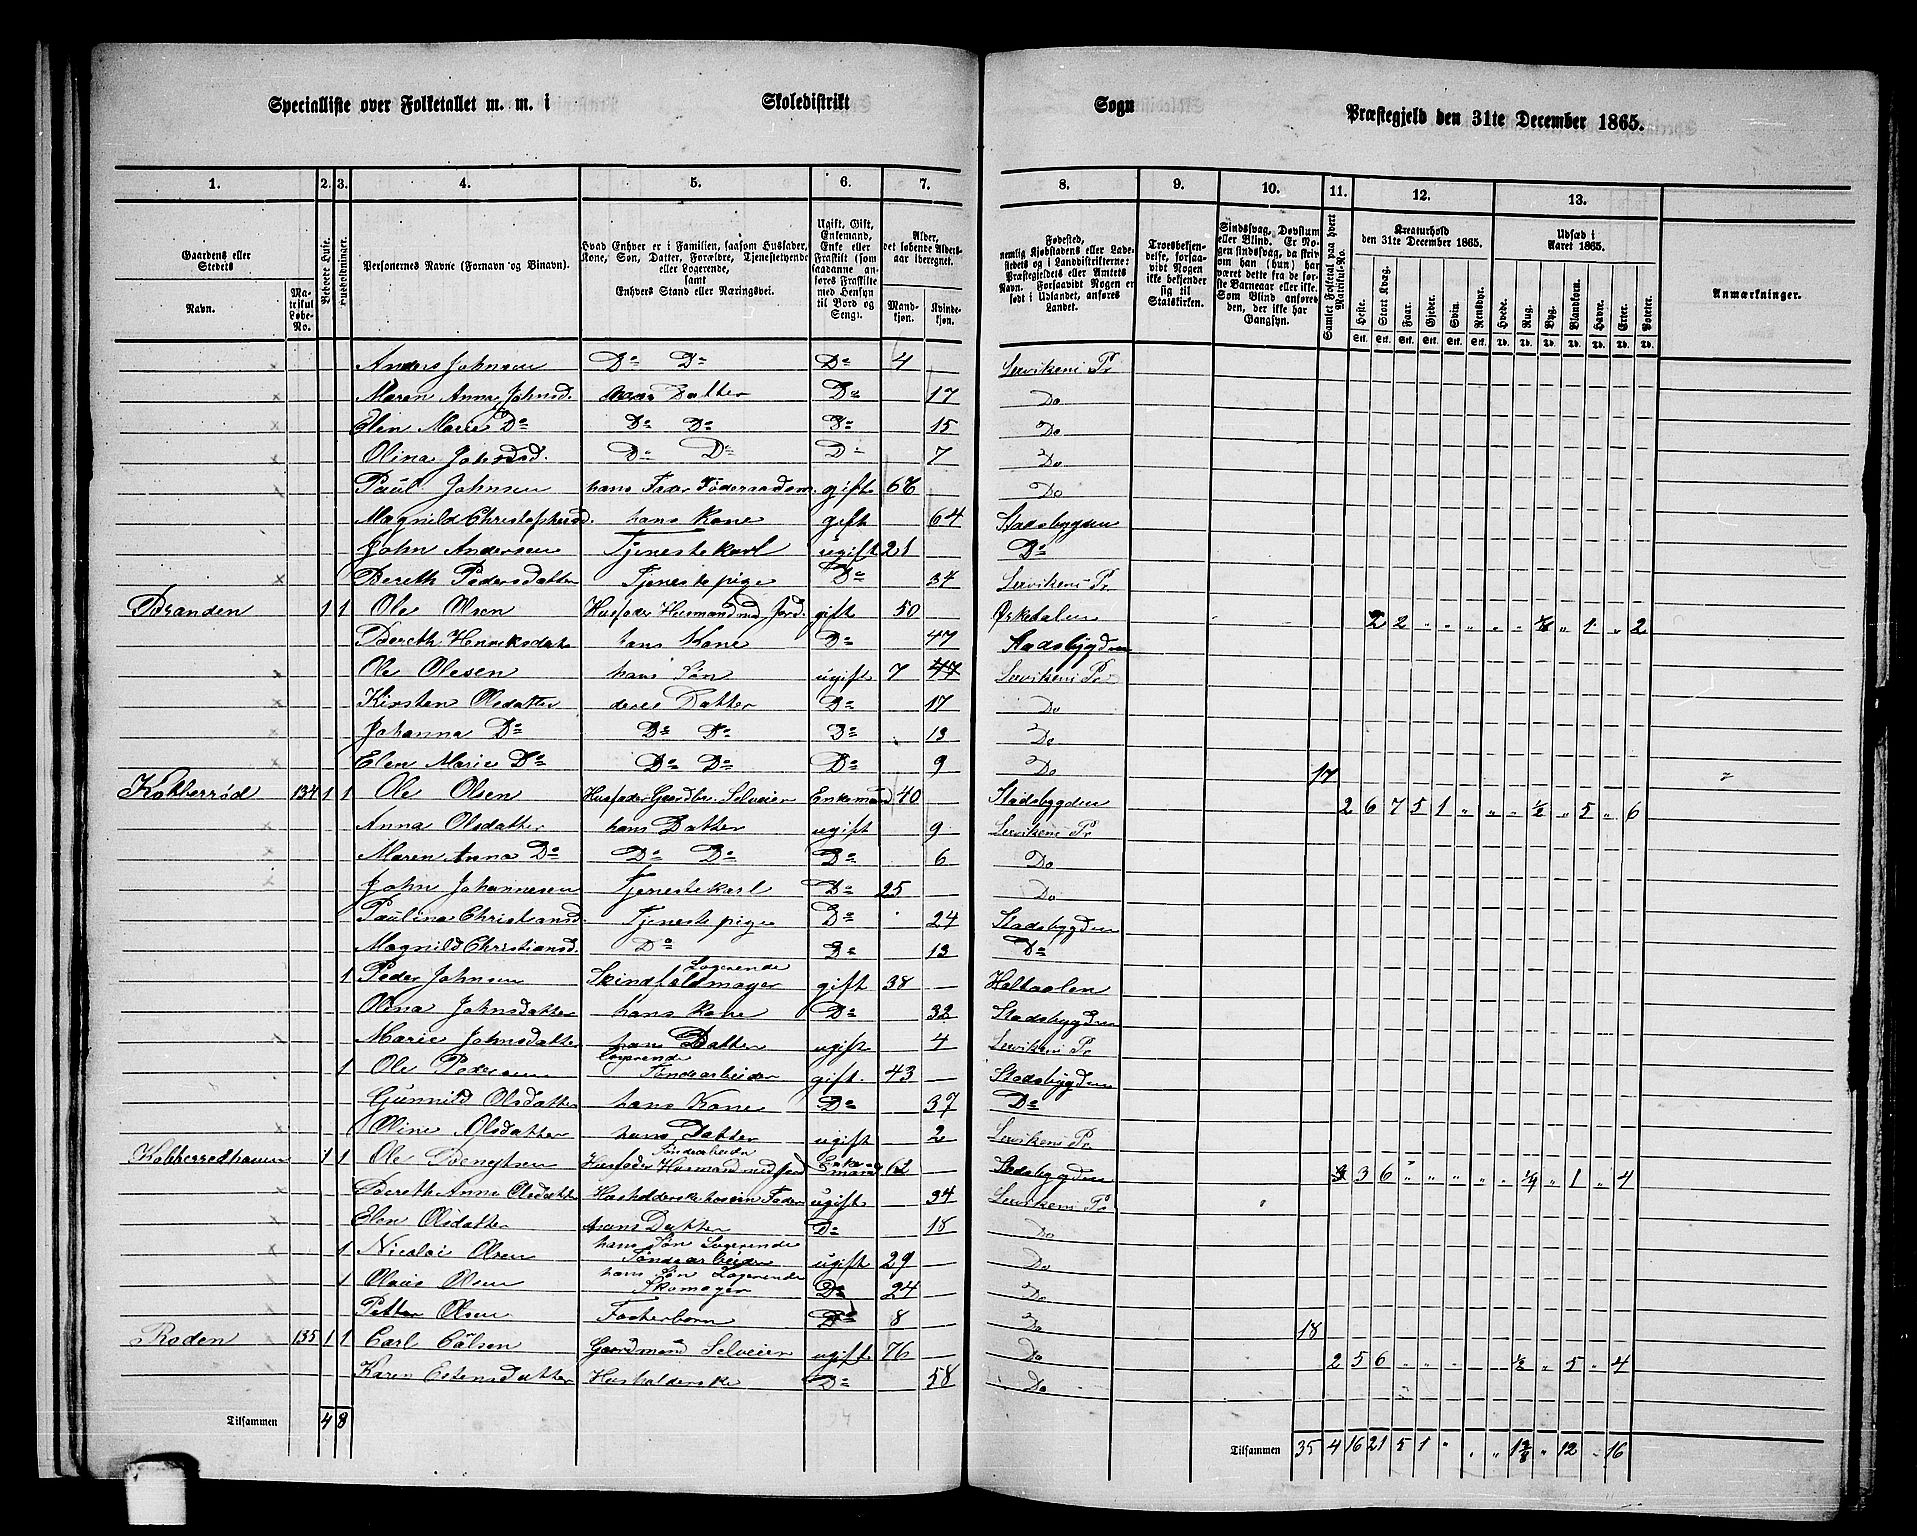 Specialliste over Folketallet m. m. i Skoledistrikt Sogn Præstegjeld den 31te December 1865.
1. 2. 3. 4. 5. 6. 7. 8. 9. 10. 11. 12. 13.
Gaardens eller Stedets
Navn.
Matrikul Løbe-No.
Beboede Huse.
Huusholdninger.
Personernes Navne (Fornavn og Binavn).
Hvad Enhver er i Familien, saasom Husfader, Kone, Søn, Datter, Forældre, Tjenestetyende eller Logerende, samt Enhvers Stand eller Næringsvei.
Ugift, Gift, Enkemand, Enke eller Fraskilt (som saadanne anføres Fraskilte med Hensyn til Bord og Seng).
Alder, det løbende Aldersaar iberegnet.
Mandkjøn.
Kvindekjøn.
Fødested, nemlig Kjøbstadens eller Ladestedets og i Landdistrikterne: Præstegjeldets eller Amtets Navn. Forsaavidt Nogen er født i Udlandet, anføres Landet.
Troesbekjendelse, forsaavidt Nogen ikke bekjender sig til Statskirken.
Sindssvag, Døvstum eller Blind. Er Nogen sindssvag, da skrives om han (hun) har været dette fra de første Barneaar eller ikke. Som Blind anføres den, der ikke har Gangsyn.
Samlet Folketal paa hvert Matrikul-No.
Kreaturhold den 31te December 1865.
Heste. Stort Kvæg. Faar. Gjeder. Svin. Rensdyr.
Udsæd i Aaret 1865.
Hvede. Rug. Byg. Blandkorn. Havre. Erter. Poteter.
Anmærkninger.
Anders Johnsen Do Do Do 4 Lexvikens Pr
Maren Anna Johnsd. hans Datter Do 17 Do
Elen Marie Do Do Do Do 15 Do
Olina Johnsd. Do Do Do 7 Do
Paul Johnsen hans Fader Føderaadsm. gift 67 Do
Magnild Christophersd. hans Kone gift 64 Stadsbygden
John Andersen Tjenestekarl ugift 21 Do
Bereth Pedersdatter Tjenestepige Do 34 Lexvikens Pr
Branden 1 1 Ole Olsen Husfader Husmand m. Jord. gift 50 Ørkedalen 2 2 " " " " " " 1 " 2
Bereth Henriksdat hans Kone Do 47 Stadsbygden
Ole Olesen hans Søn ugift 7 Lexvikens Pr
Kirsten Olsdatter deres Datter Do 17 Do
Johanna Do Do Do Do 13 Do
Elen Marie Do Do Do Do 9 Do 17
Kobberrød 134 1 1 Ole Olsen Husfader Gaardbr. Selveier Enkemand 40 Stadsbygden 2 6 7 5 1 " " " " 1/2 " 5 " 6
Anna Olsdatter hans Datter ugift 9 Lexvikens Pr
Maren Anna Do Do Do Do 6 Do
John Johannesen Tjenestekarl Do 25 Do
Paulina Christiansd. Tjenestepige Do 24 Stadsbygden
Magnild Christiansd. Do Do 13 Do
1 Peder Johnsen Logerende Skindfeldmager gift 38 Holtaalen
Olina Johnsdatter hans Kone Do 32 Stadsbygden
Marie Johnsdatter hans Datter ugift 4 Lexvikens Pr
1 Ole Pedersen Logerende Tøndearbeider gift 43 Stadsbygden
Gunnild Olsdatter hans Kone Do 37 Do
Oline Olsdatter hans Datter ugift 2 Lexvikens Pr
Kobberrødhaugen 1 1 Ole Bengtsen Tøndearbeider Husfader Husmand med Jord Enkemand 62 Stadsbygden 3 6 " " " " " 1/4 " 1 " 4
Bereth Anna Olsdatter Husholderske hos sin Fader ugift 34 Lexvikens Pr
Elen Olsdatter hans Datter Do 18 Do
1 Nicolai Olsen hans Søn Logerende Tøndearbeider ugift 29 Do
1 Olaus Olsen hans Søn Logerende Skomager Do 24 Do
Petter Olsen Fosterbarn Do 8 Do 18
Roden 135 1 1 Carl Colsen Gaardmand Selveier ugift 76 Do 2 5 6 " " " " 1/2 " 5 " 4
Karen Estensdatter Husholderske Do 58 Do
Tilsammen 4 8
Tilsammen 35 4 16 21 5 1 " " " " 12 " 16